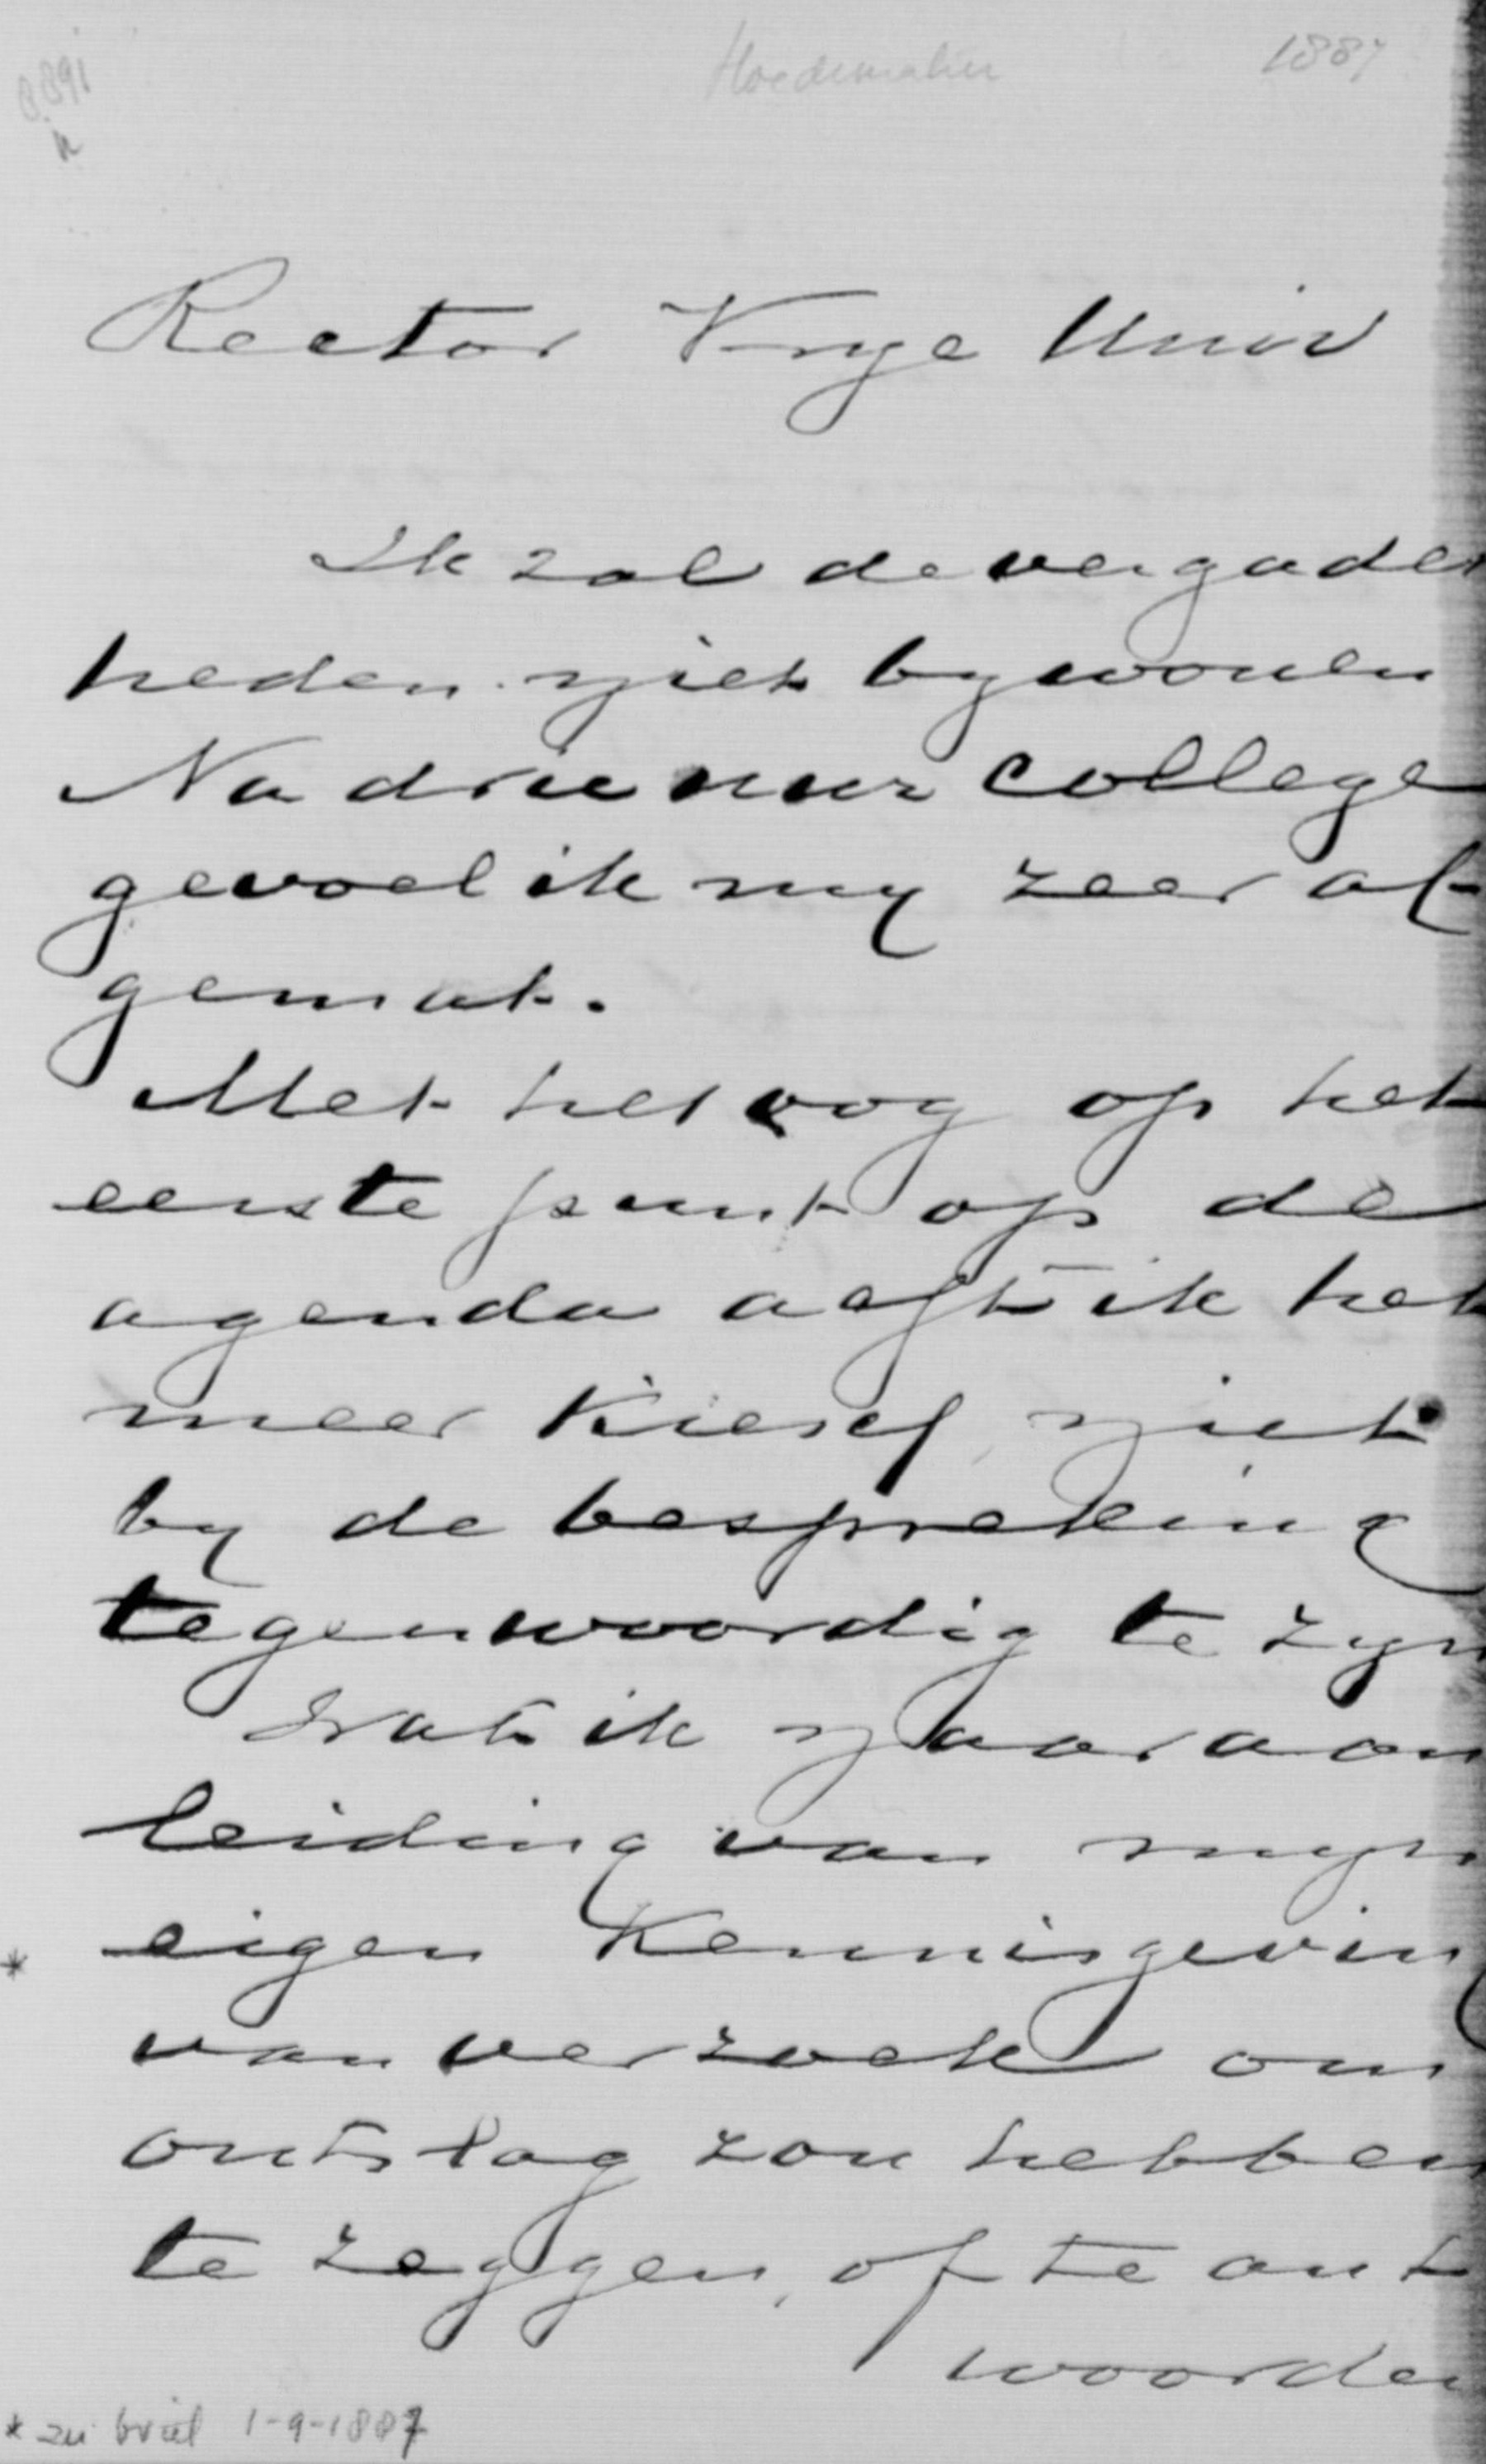 Hoedemaker 1887
Rector Vrye Univ
Ik zal de vergader
heden niet bywonen
Na drie uur college
gevoel ik my zeer af-
gemat.
Met het oog op het
eerste punt op de
agenda acht ik het
meer kiesch niet
by de bespreking
tegenwoordig te zyn
Wat ik naar aan
leiding van myn
* eigen kennisgeving
van verzoek om
ontslag zou hebben
te zeggen, of te ant
woorden
* zie brief 1-9-1887